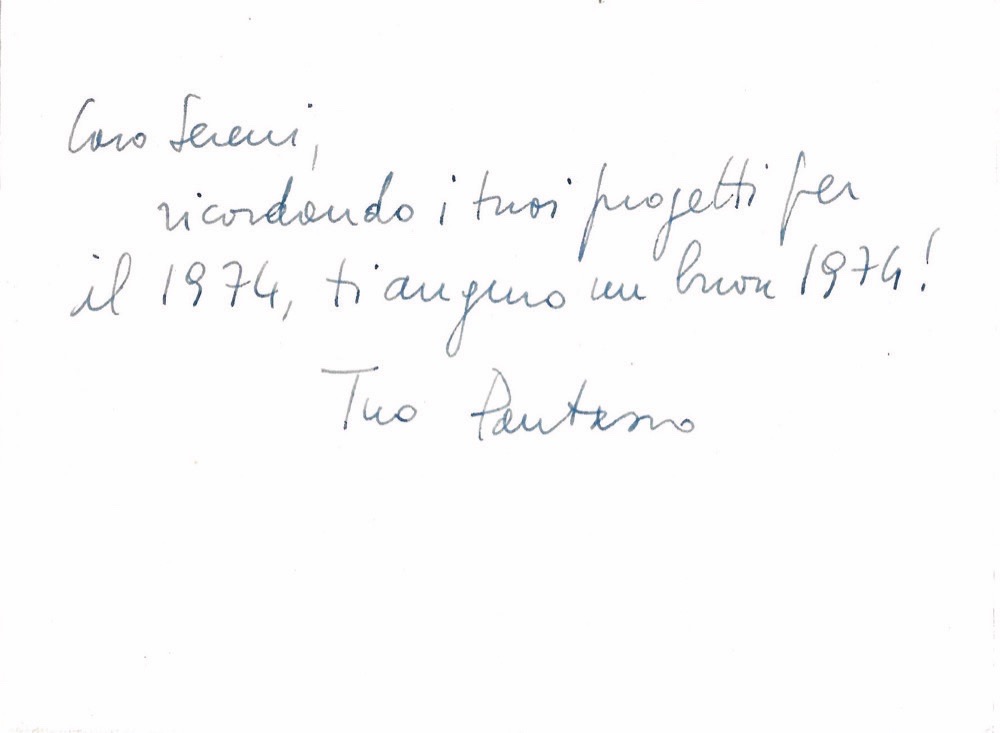 Caro Sereni,
ricordando i tuoi progetti per
il 1974, ti auguro un buon 1974!
Tuo